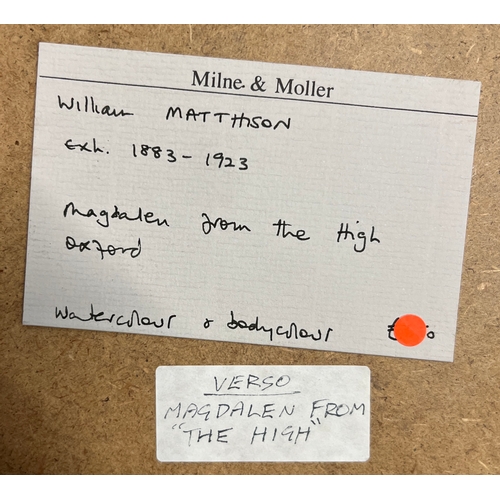 Milne & Moller
William MATTHISON
Exh. 1883 - 1923
Magdalen from the High
Oxford
Watercolour & bodycolour
VERSO
MAGDALEN FROM
"THE HIGH"